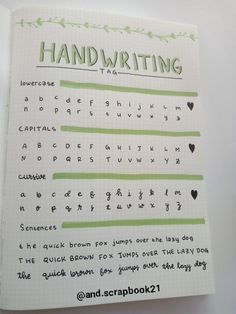 HANDWRITING
TAG
lowercase
a b c d e f g h i j k l m
n o p q r s t u v w x y z
CAPITALS
A B C D E F G H I J K L M
N O P Q R S T U V W X Y Z
cursive
a b c d e f g h i j k l m
n o p q r s t u v w x y z
Sentences
the quick brown fox jumps over the lazy dog
THE QUICK BROWN FOX JUMPS OVER THE LAZY DOG
the quick brown fox jumps over the lazy dog
@and.scrapbook21